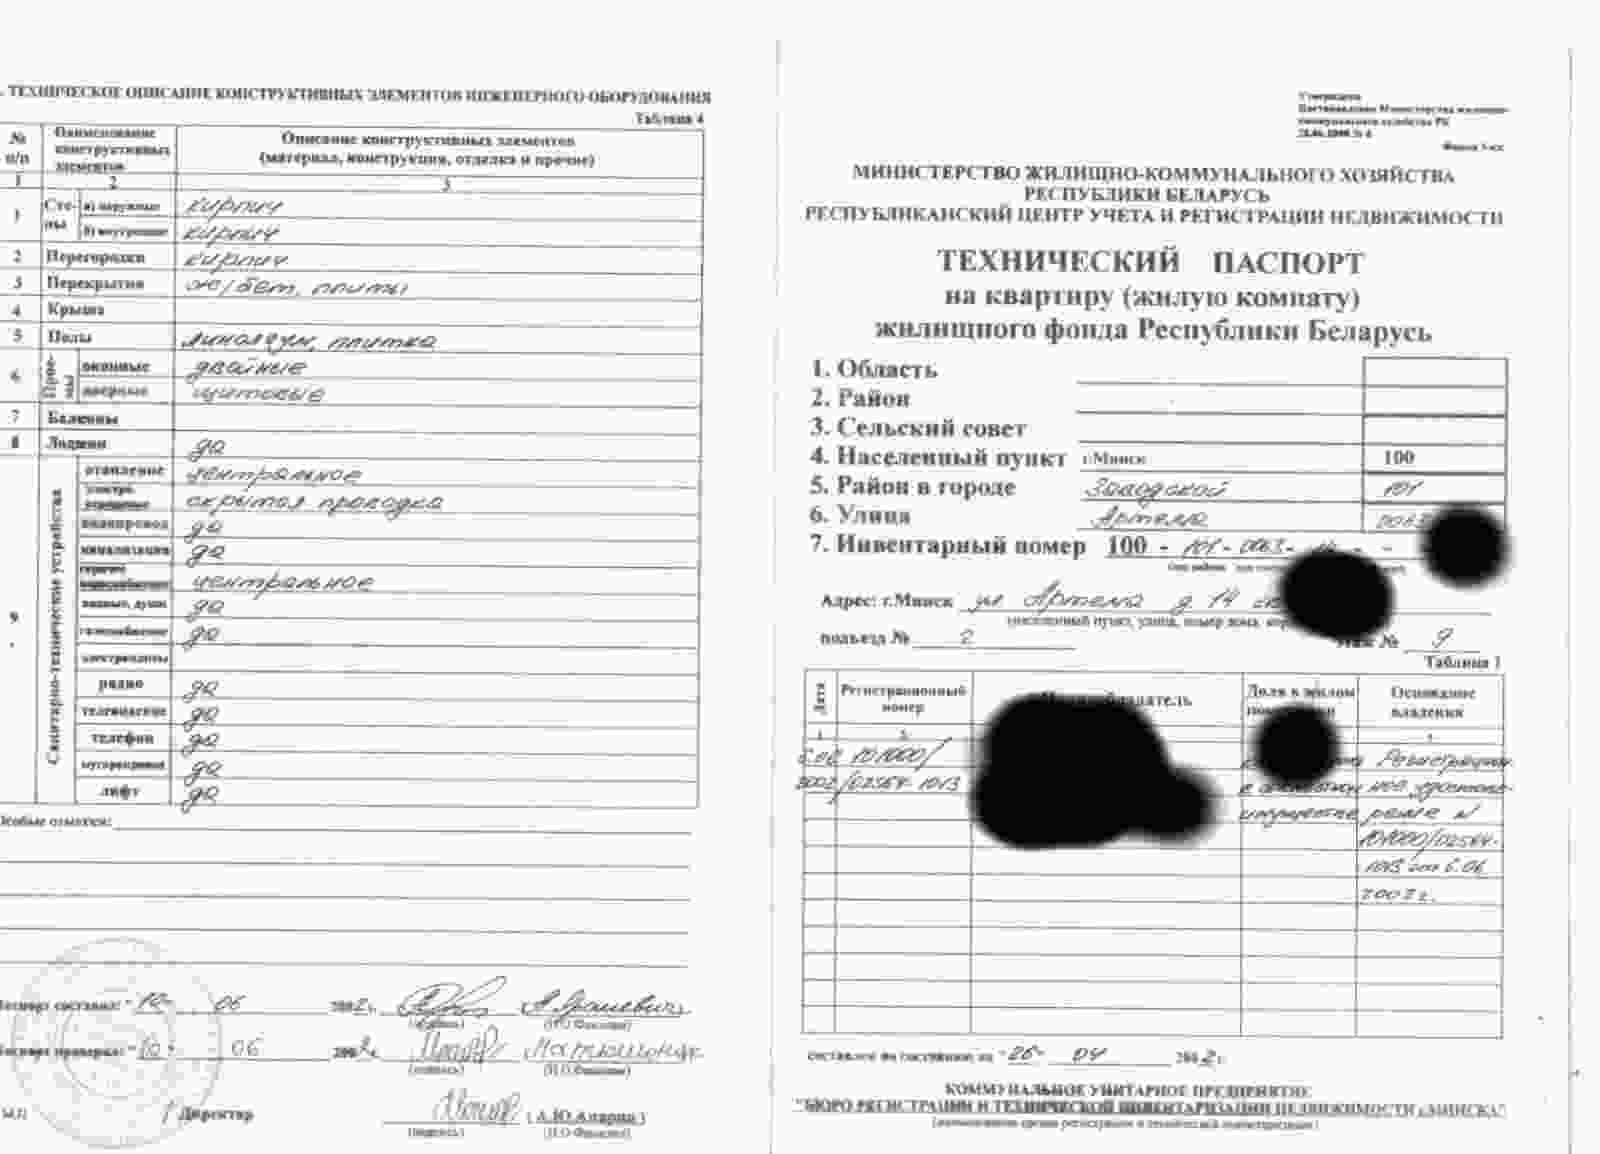 ТЕХНИЧЕСКОЕ ОПИСАНИЕ КОНСТРУКТИВНЫХ ЭЛЕМЕНТОВ ИНЖЕНЕРНОГО ОБОРУДОВАНИЯ
Таблица 4
№ п/п
Наименование конструктивных элементов
Описание конструктивных элементов
(материал, конструкция, отделка и прочие)
1 2 3
1 Сте-ны а) наружные кирпич
б) внутренние кирпич
2 Перегородки кирпич
3 Перекрытия ж/бет, плиты
4 Крыша
5 Полы линолеум, плитка
6 Прое-мы оконные двойные
дверные щитовые
7 Балконы
8 Лоджии да
9 Санитарно-технические устройства
отопление центральное
электро- освещение скрытая проводка
водопровод да
канализация да
горячее водоснабжение центральное
ванные, души да
газоснабжение да
электроплиты
радио да
телевидение да
телефон да
мусоропровод да
лифт да
Особые отметки:
Паспорт составил: "10" 06 2002г.
(подпись) (И.О.Фамилия)
Паспорт проверил: "10" 06 2002г.
(подпись) (И.О.Фамилия)
М.П. Директор
(подпись) (И.О.Фамилия)
Утверждена
Постановление Министерства жилищно-
коммунального хозяйства РБ
Форма 1-кв
МИНИСТЕРСТВО ЖИЛИЩНО-КОММУНАЛЬНОГО ХОЗЯЙСТВА
РЕСПУБЛИКИ БЕЛАРУСЬ
РЕСПУБЛИКАНСКИЙ ЦЕНТР УЧЕТА И РЕГИСТРАЦИИ НЕДВИЖИМОСТИ
ТЕХНИЧЕСКИЙ ПАСПОРТ
на квартиру (жилую комнату)
жилищного фонда Республики Беларусь
1. Область
2. Район
3. Сельский совет
4. Населенный пункт г.Минск 100
5. Район в городе Заводской 101
6. Улица Артема 0063
7. Инвентарный номер 100 - 101 - 0063 -
Адрес: г.Минск ул Артема д. 14
(населенный пункт, улица, номер дома,
подъезд № 2 этаж № 9
Таблица 1
Дата
Регистрационный номер
Доля в жилом
Основание владения
101000/
2002 /02564-1013
Регистрацион-
ное удостове-
имуществе рение N
101000/02564-
1013 от 6.06
2002г.
составлен по состоянию на "26" 04 2002г.
КОММУНАЛЬНОЕ УНИТАРНОЕ ПРЕДПРИЯТИЕ
"БЮРО РЕГИСТРАЦИИ И ТЕХНИЧЕСКОЙ ИНВЕНТАРИЗАЦИИ НЕДВИЖИМОСТИ г.МИНСКА"
(наименование органа регистрации и технической инвентаризации)